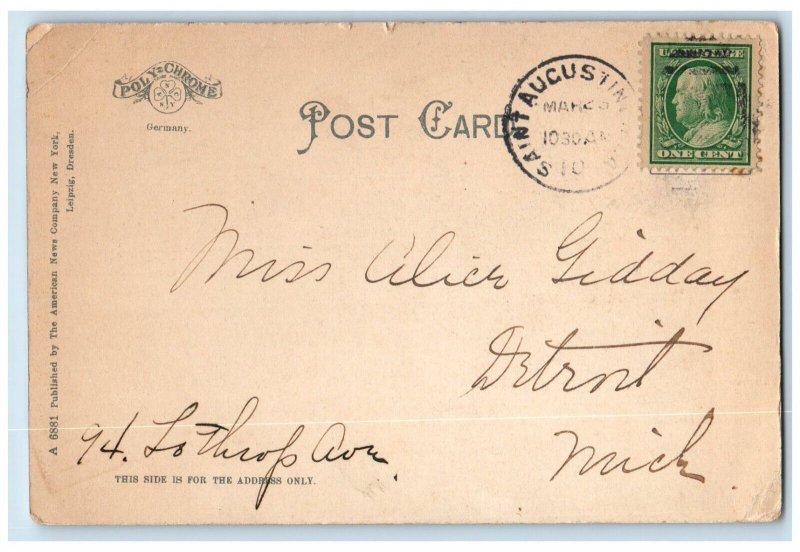 POLY-CHROME
Germany.
POST CARD
SAINT AUGUSTIN
MAR
1030 AM
10
U.S. POSTAGE
ONE CENT
A 6881 Published by The American News Company New York,
Leipzig, Dresden.
Miss Alice Gidday
Detroit
94. Lothrop Ave.
Mich.
THIS SIDE IS FOR THE ADDRESS ONLY.